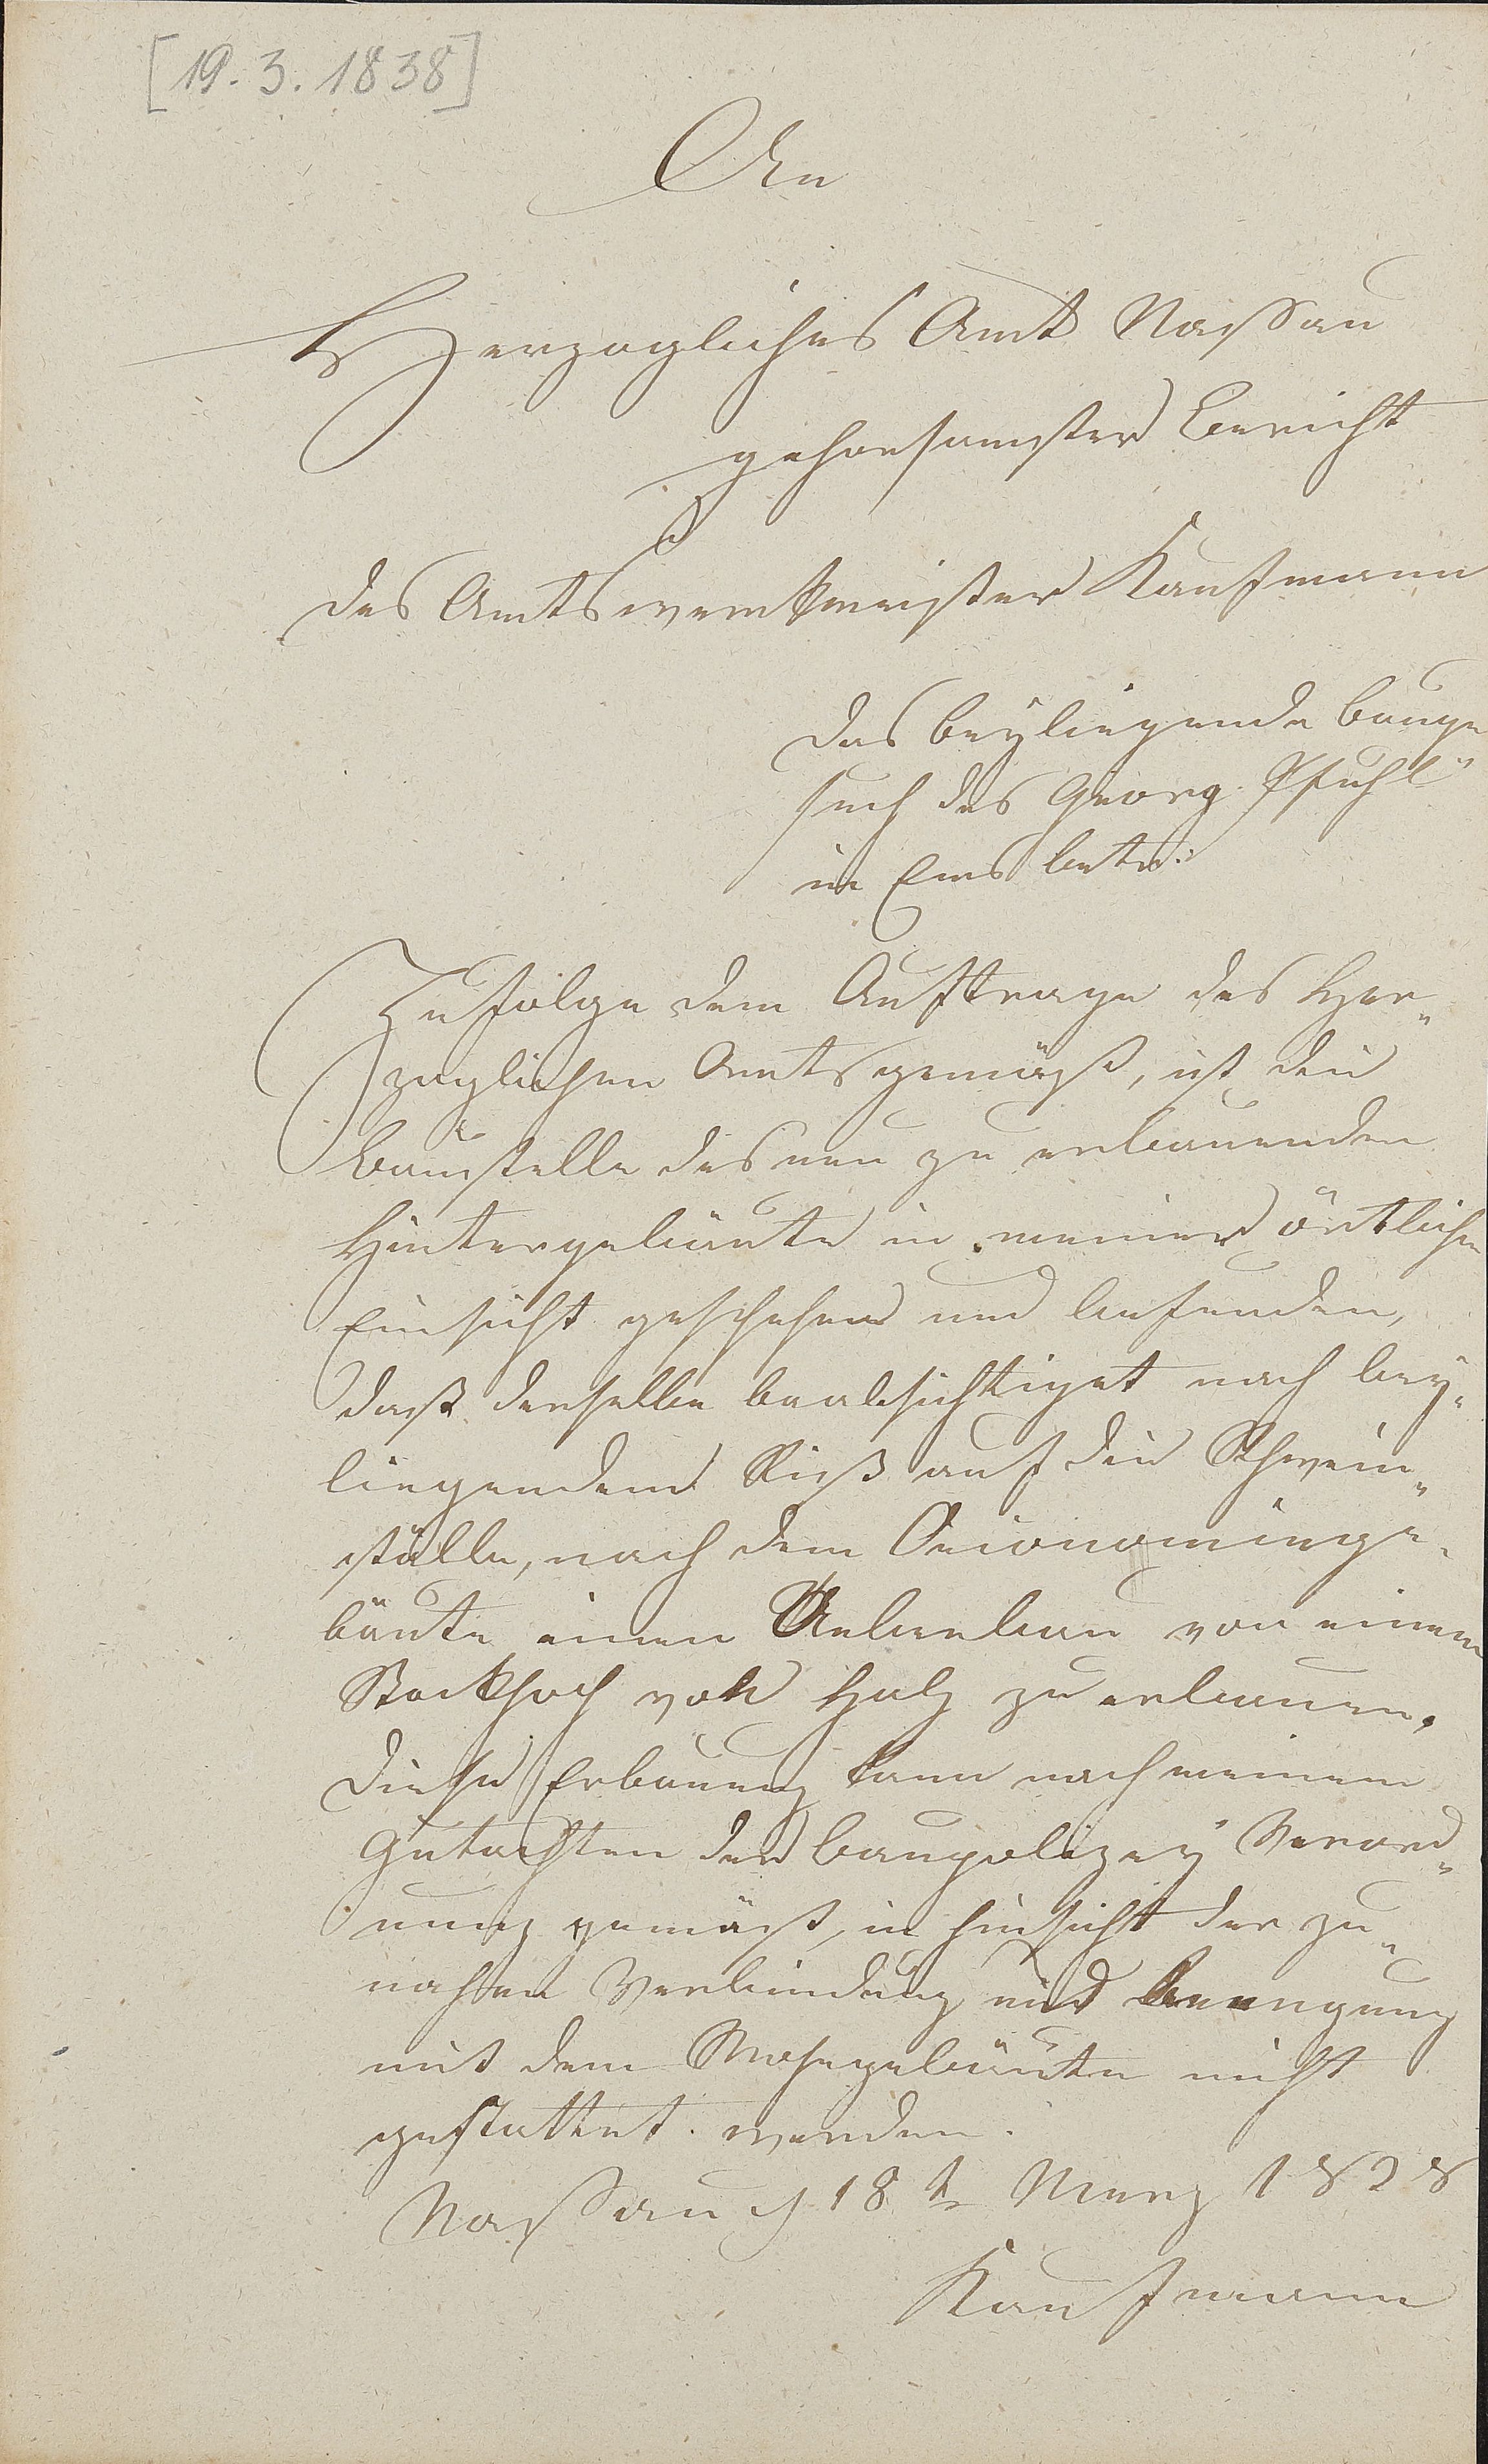 [19. 3. 1838]
An
Herzogliches Amt Nassau
gehorsamster Bericht
des Amtswerkmeister Kaufmann
Das beyliegende Bauge
such des Georg Pfuhl
in Ems betr:
Zufolge dem Auftrage des Her„
zoglichen Amts gemäß, ist die
Baustelle des neu zu erbauenden
Hintergebäute in meiner örtlichen
Einsicht geschehen und befunden,
daß derselbe beabsichtiget nach bey„
liegendem Riß auf die Schwein„
ställe, nach dem Oeconomiege„
bäute einen Ueberbau von einem
Stockhoch von Holz zu erbauen.
Diese Erbauung kann nach meinem
Gutachten der Baupolizey Verord„
nung gemäß, in hinsicht der zu„
nahen Verbindung und Beengung
mit dem Wohngebäute nicht
gestattet werden.
Nassau d 18t März 1838
Kaufmann